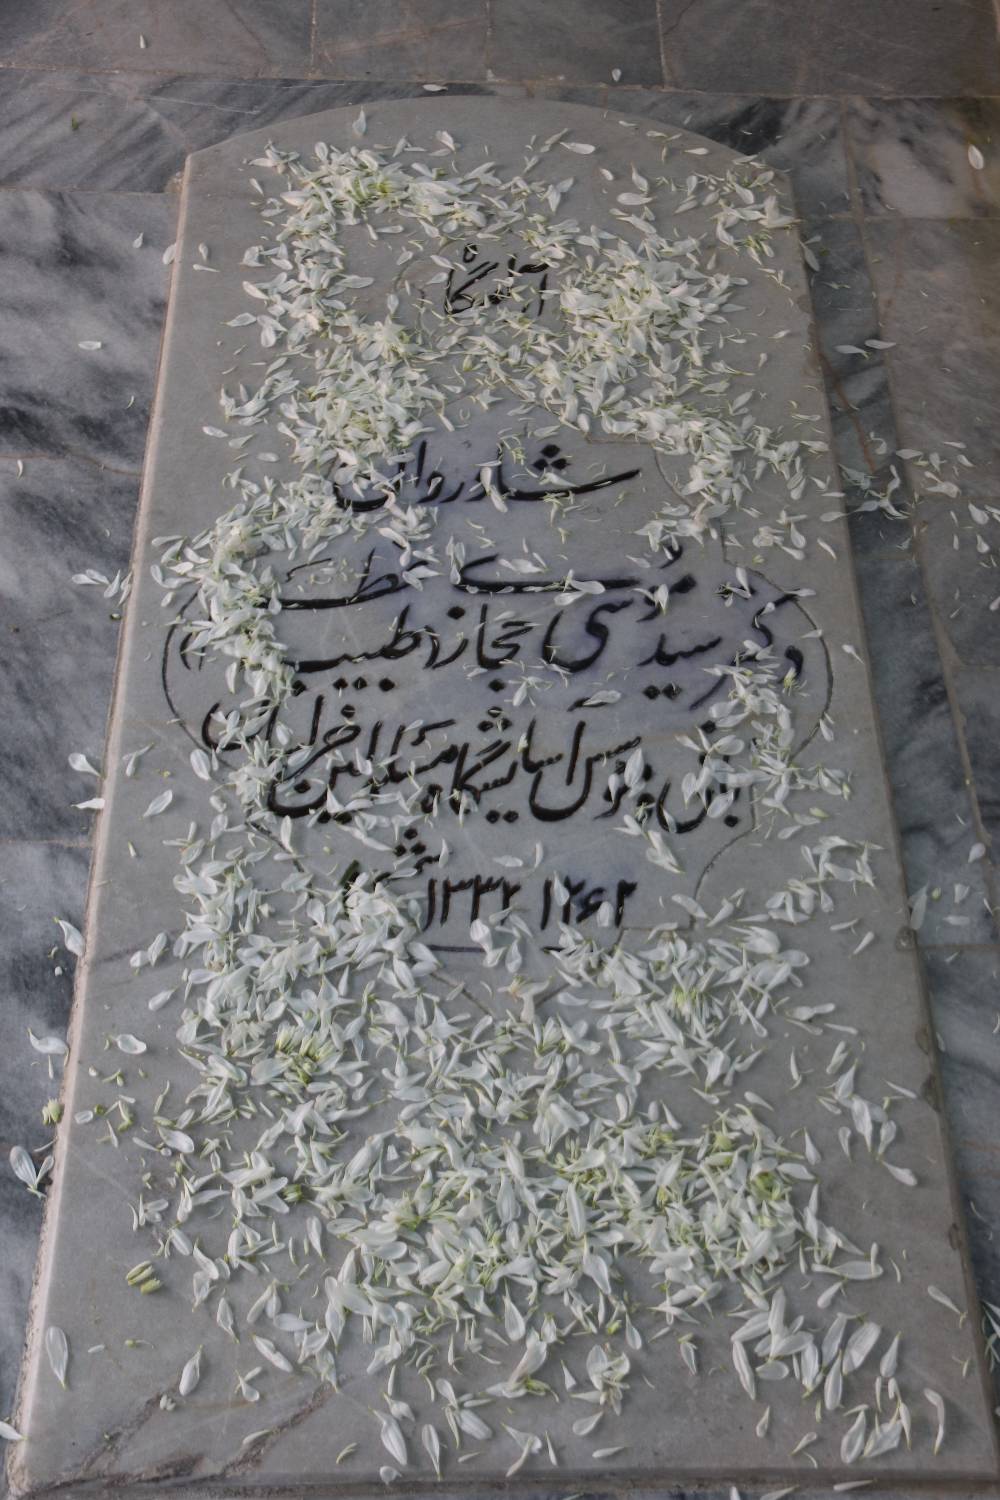 آرامگاه
شادروان
دکتر سید موسی حجازی طبیب
بانی و موسس آسایشگاه مسلولین
۱۲۶۲ ۱۳۳۲